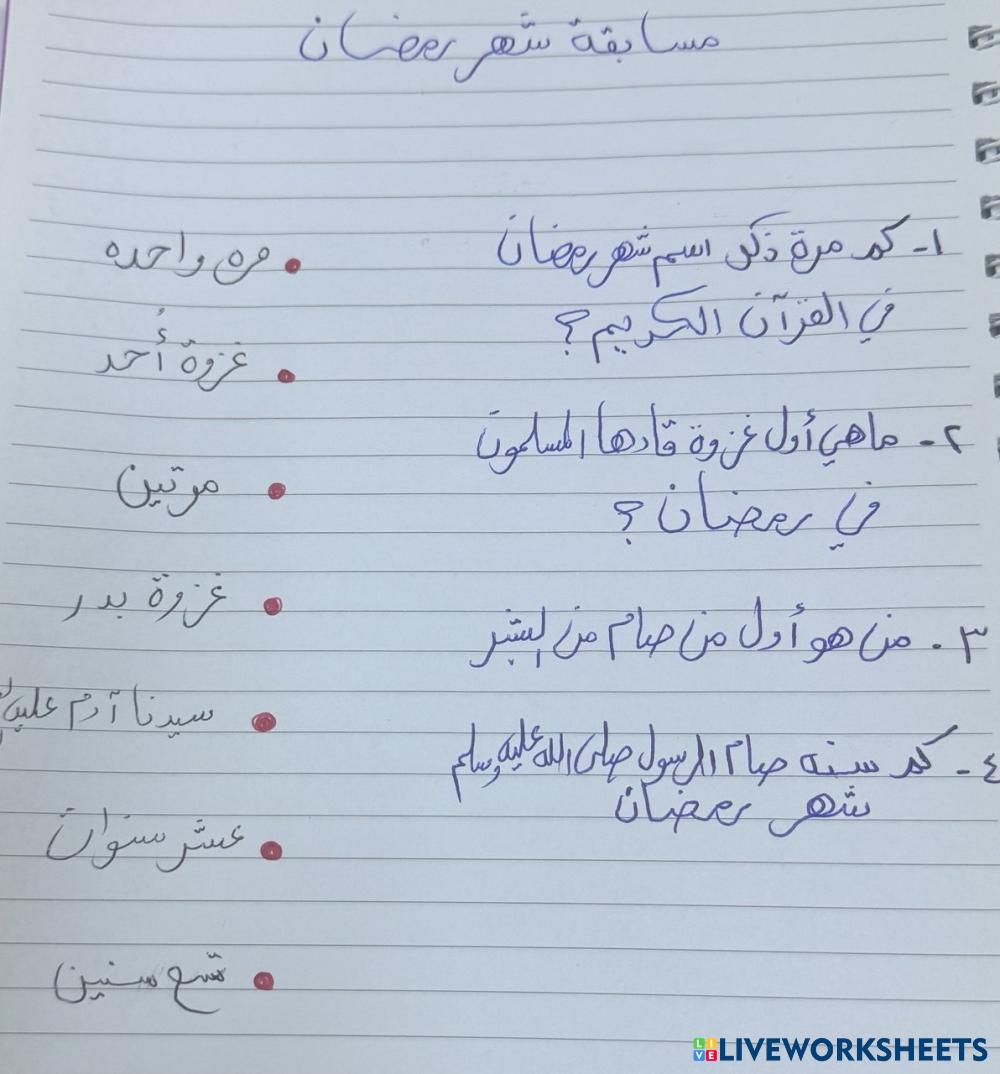 مسابقة شهر رمضان
١- كم مرة ذكر اسم شهر رمضان
في القرآن الكريم؟
٢- ماهي أول غزوة قادها المسلمون
في رمضان؟
٣. من هو أول من صام من البشر
٤- كم سنه صام الرسول صلى الله عليه وسلم
شهر رمضان
مره واحده
غزوة أُحد
مرتين
غزوة بدر
سيدنا آدم عليه
عشر سنوات
تسع سنين
LIVEWORKSHEETS